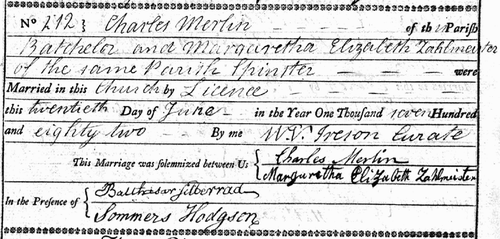 No 212 } Charles Merlin of this Parish
Batchelor and Margaretha Elizabeth Zahlmeister
of the same Parish Spinster were
Married in this Church by Licence
this twentieth Day of June in the Year One Thousand seven Hundred
and eighty two By me Wm. Ireson Curate
This Marriage was solemnized between Us { Charles Merlin
Margaretha Elizabeth Zahlmeister
In the Presence of { Balthasar Silberrad
Sommers Hodgson